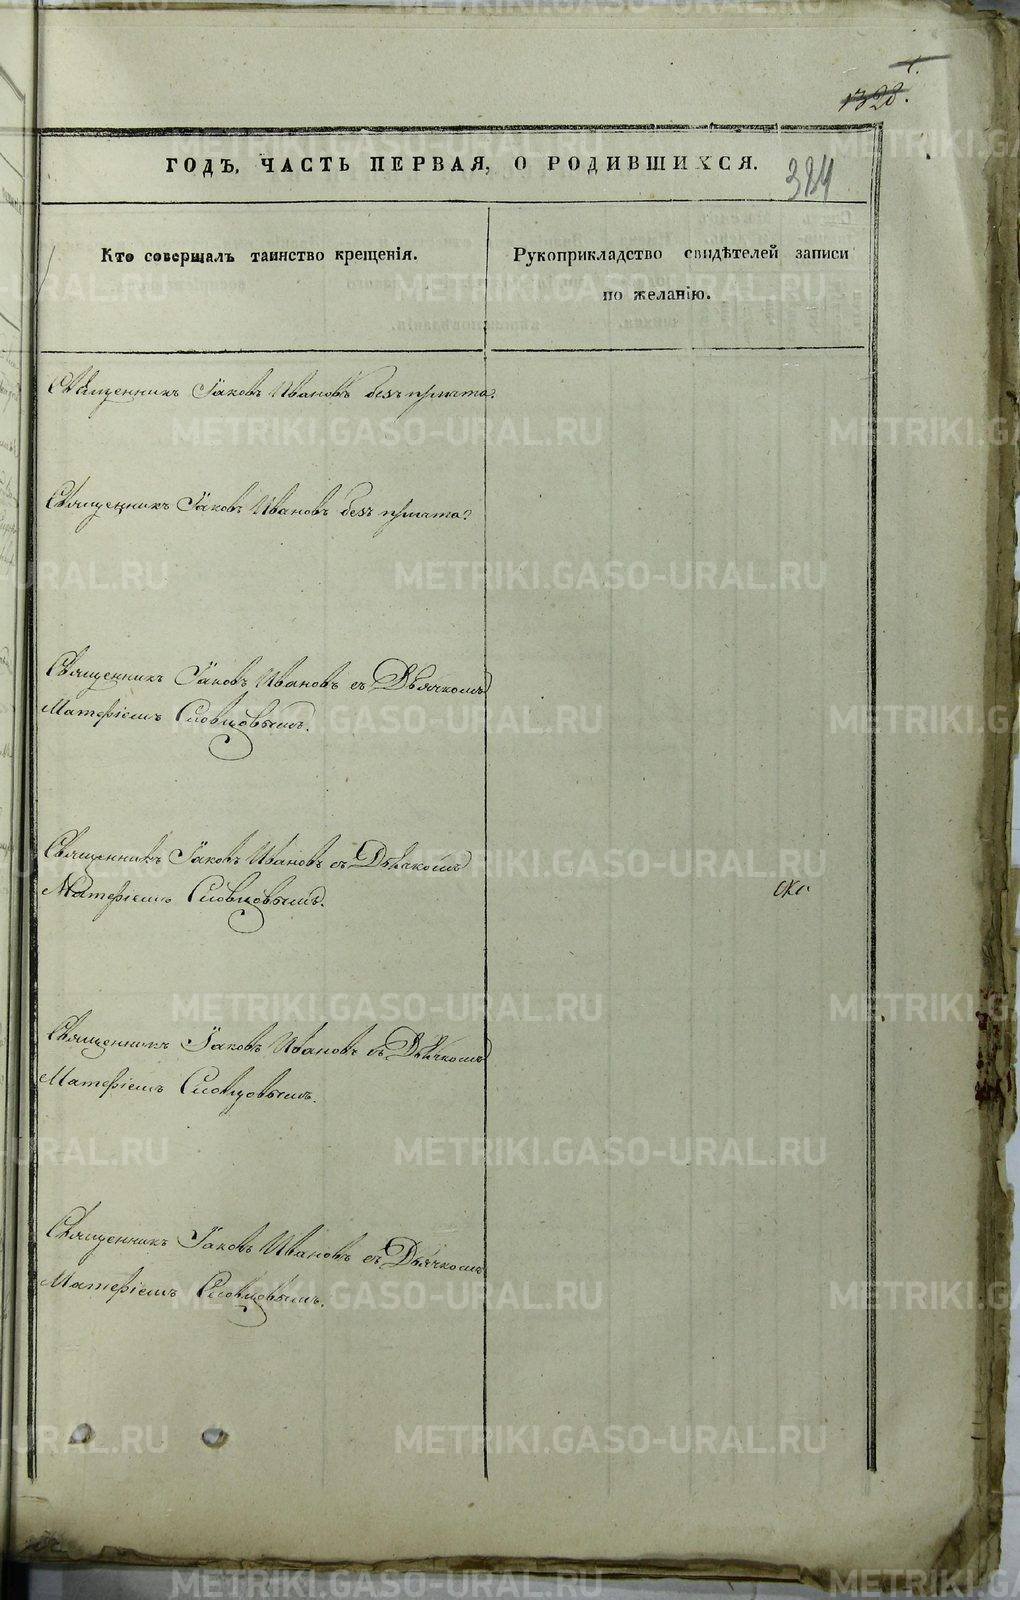 1328.
ГОДЪ, ЧАСТЬ ПЕРВАЯ, О РОДИВШИХСЯ.
324
Кто совершалъ таинство крещенія.
Рукоприкладство свидѣтелей записи
по желанію.
Священникъ Іаковъ Ивановъ безъ причта.
Священникъ Іаковъ Ивановъ безъ причта.
Священникъ Іаковъ Ивановъ съ Дьячкомъ
Матѳіемъ Словцовымъ.
Священникъ Іаковъ Ивановъ съ Дьячкомъ
Матѳіемъ Словцовымъ.
Священникъ Іаковъ Ивановъ съ Дьячкомъ
Матѳіемъ Словцовымъ.
Священникъ Іаковъ Ивановъ съ Дьячкомъ
Матѳіемъ Словцовымъ.
METRIKI.GASO-URAL.RU